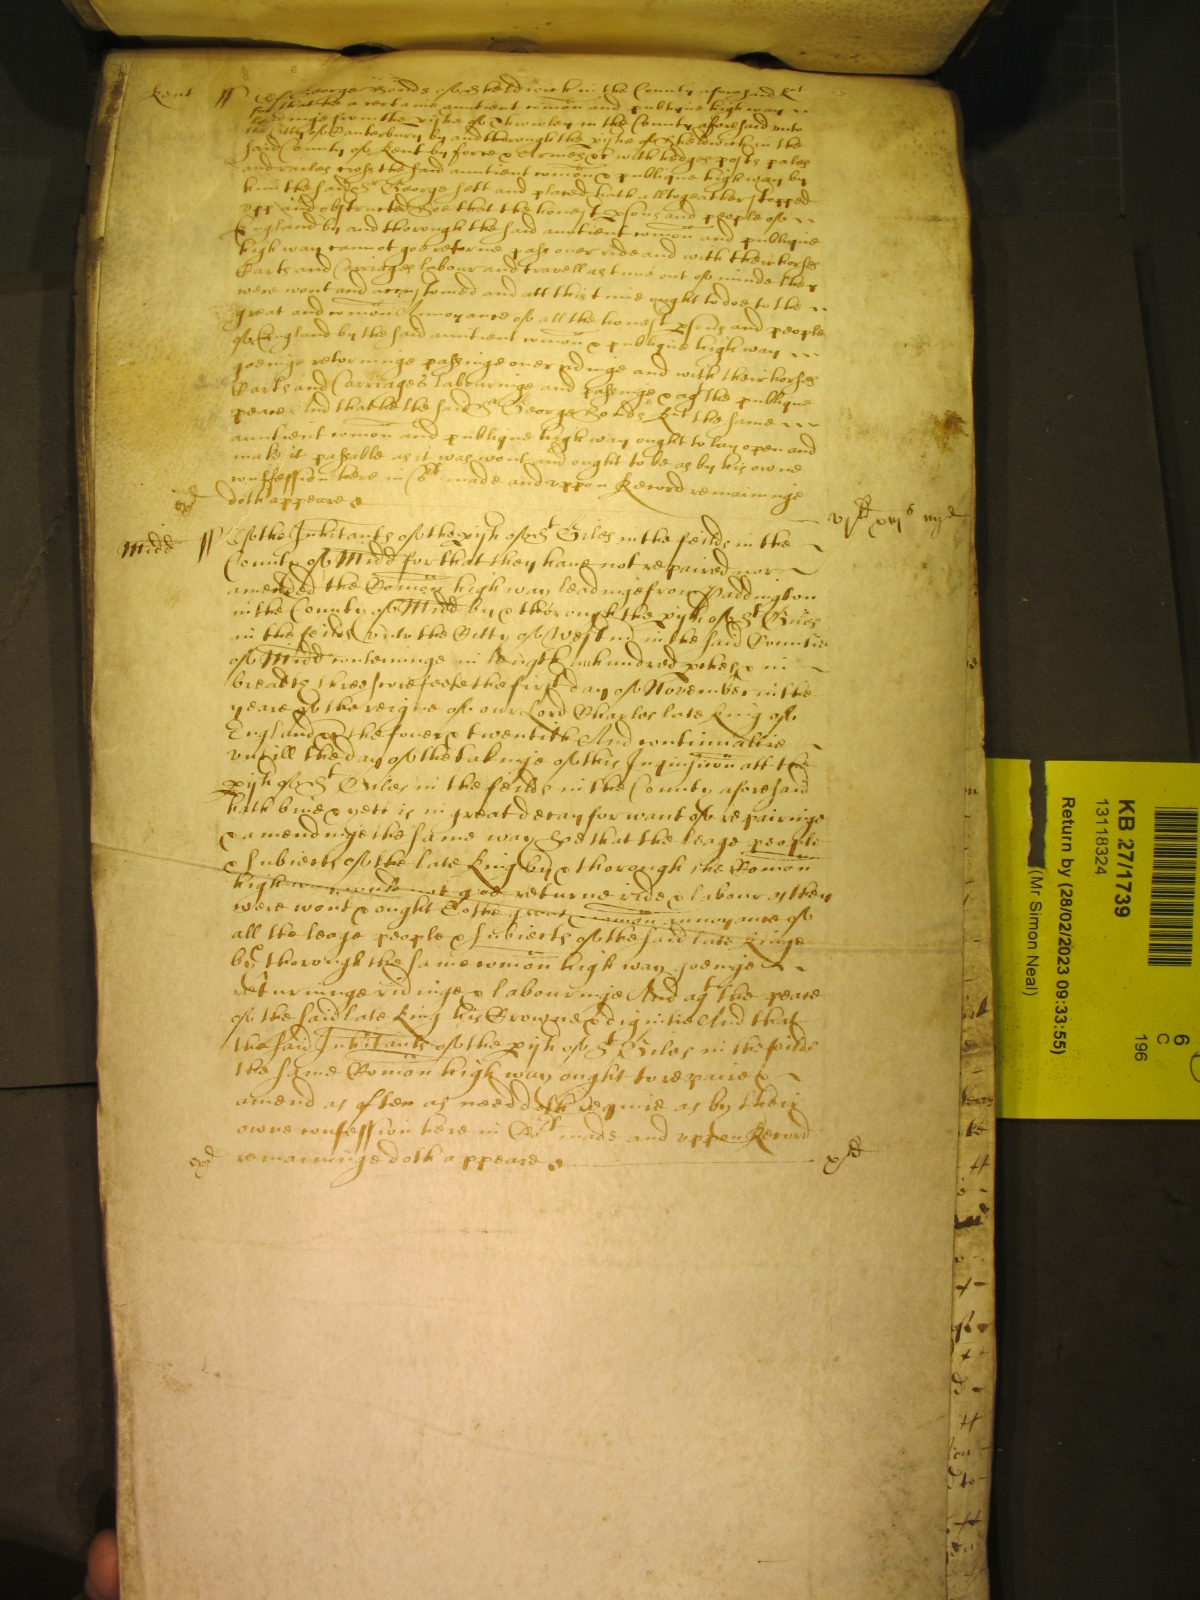 Kent ss Of George Sonds of Sheldwich in the County aforesaid knt
for that he a certaine auntient comon and publique high way
leadinge from the pishe of Throwley in the County aforesaid unto
the Citty of Canterbury by and thorough the pishe of Sheldwich in the
said County of Kent by force & Armes &c with hedges posts pales
and railes cross the said auntient comon & publique high way by
him the said Sr George sett and placed hath alltogether stopped
upp and obstructed Soe that the honest psons and people of
England by and thorough the said auntient comon and publique
high way cannot goe returne passe over ride and with their horses
Carts and Carriages labour and travell as time out of minde they
were wont and accustomed and all this time ought to doe to the
great and comon Annoyance of all the honest psons and people
of England by the said auntient comon & publique high way
goeinge returninge passinge over ridinge and with their horses
Carts and Carriages labouringe and passinge & agt the publique
peace And that he the said Sr George Sonds knt the same
auntient comon and publique high way ought to lay open and
make it passable as it was wont and ought to be as by his owne
confession here in Cort made and uppon Record remaininge
doth appeare
Midd ss Of the Inhitants of the pish of St Giles in the feilds in the
County of Midd for that they have not repaired nor
amended the Comon high way leadinge from Paddington
in the County of Midd by & thorough the pish of St Giles
in the feilds unto the Citty of Westm in the said Countie
of Midd conteininge in length hundred pches & in
breadth threescore feete the first day of November in the
yeare of the reigne of our Lord Charles late King of
England &c the fower & twentith And continuallie
untill the day of the takinge of this Inquisicon att the
pish of St Giles in the feilds in the County aforesaid
hath bine & yett is in great decay for want of repairinge
& amendinge the same way Soe that the leage people
& subiects of the late King by & thorough the Comon
high way could not goe returne ride & labour as they
were wont & ought To the great comon annoyance of
all the leage people & subiects of the said late Kinge
by thorough the same comon high way goeinge
returninge ridinge & labouringe And agt the peace
of the said late King his Crowne & dignitie And that
the said Inhitants of the pish of St Giles in the feilds
the same Comon high way ought to repaire &
amend as often as need doth require as by their
owne confession here in Cort made and uppon Record
remaininge doth appeare
KB 27/1739
13118324
Return by (28/02/2023 09:33:55)
(Mr Simon Neal)
6
C
196